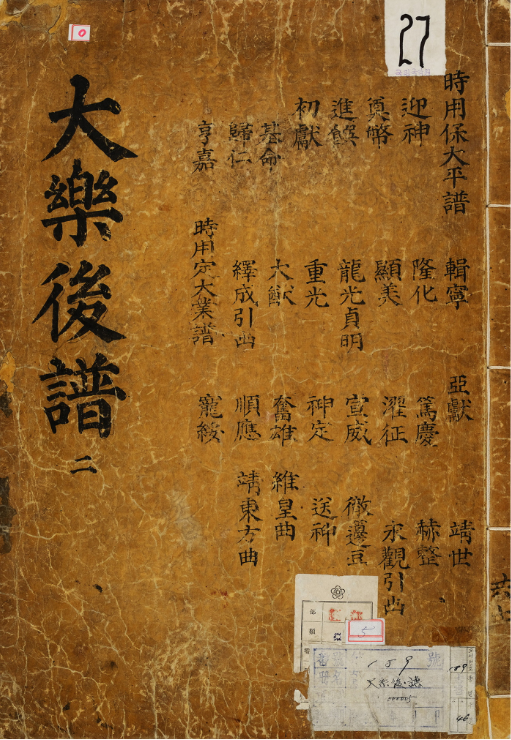 大樂後譜 二
時用保大平譜
迎神
奠幣
進饌
初獻
基命
歸仁
亨嘉
輯寧
隆化
顯美
龍光貞明
重光
大猷
繹成引出
時用定大業譜
亞獻
篤慶
濯征
宣威
神定
奮雄
順應
寵綏
靖世
赫整
永觀引出
徹籩豆
送神
維皇曲
靖東方曲
27
0
5
159
大樂後譜
159
46